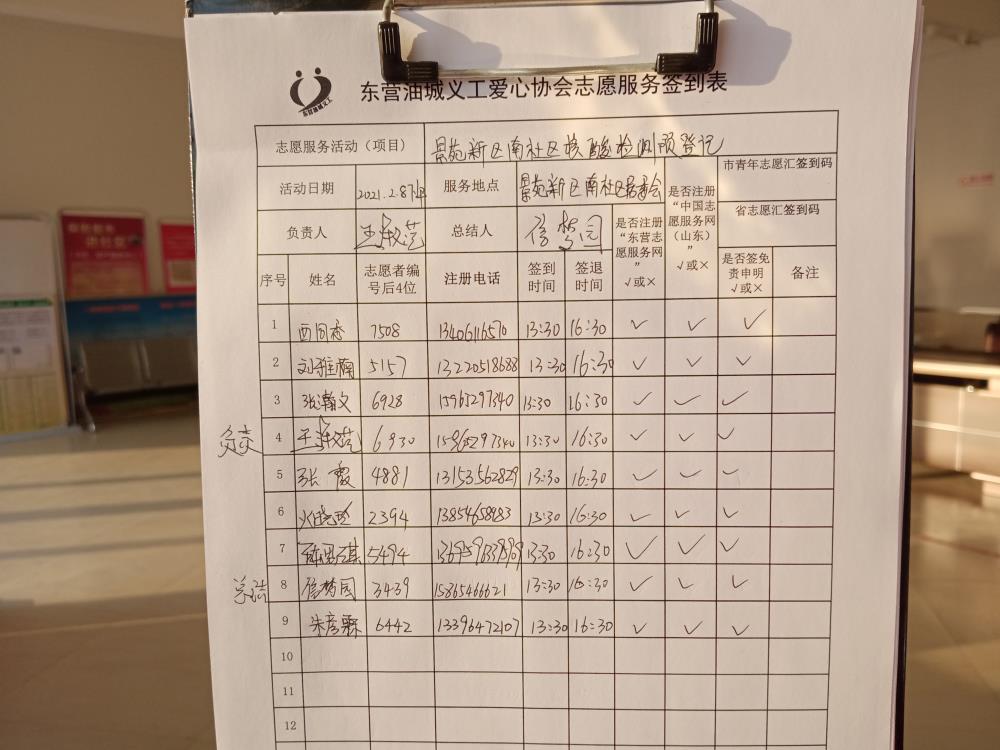 东营油城义工
东营油城义工爱心协会志愿服务签到表
志愿服务活动（项目） 景苑新区南社区核酸检测预登记
活动日期 2021.2.8下午 服务地点 景苑新区南社区居委会 是否注册“中国志愿服务网（山东）”√或× 市青年志愿汇签到码
负责人 总结人 信梦园 是否注册“东营志愿服务网”√或× 省志愿汇签到码
序号 姓名 志愿者编号后4位 注册电话 签到时间 签退时间 是否签免责申明√或× 备注
1 7508 13406116570 13:30 16:30 ✓ ✓ ✓
2 刘雅楠 5157 13220518688 13:30 16:30 ✓ ✓ ✓
3 张瀚文 6928 15965297340 13:30 16:30 ✓ ✓ ✓
负责 4 6930 15965297340 13:30 16:30 ✓ ✓ ✓
5 张霞 4881 13153562829 13:30 16:30 ✓ ✓ ✓
6 2394 13854658983 13:30 16:30 ✓ ✓ ✓
7 5494 13:30 16:30 ✓ ✓ ✓
总结 8 信梦园 3439 15865466621 13:30 16:30 ✓ ✓ ✓
9 朱彦霖 6442 13396472107 13:30 16:30 ✓ ✓ ✓
10
11
12